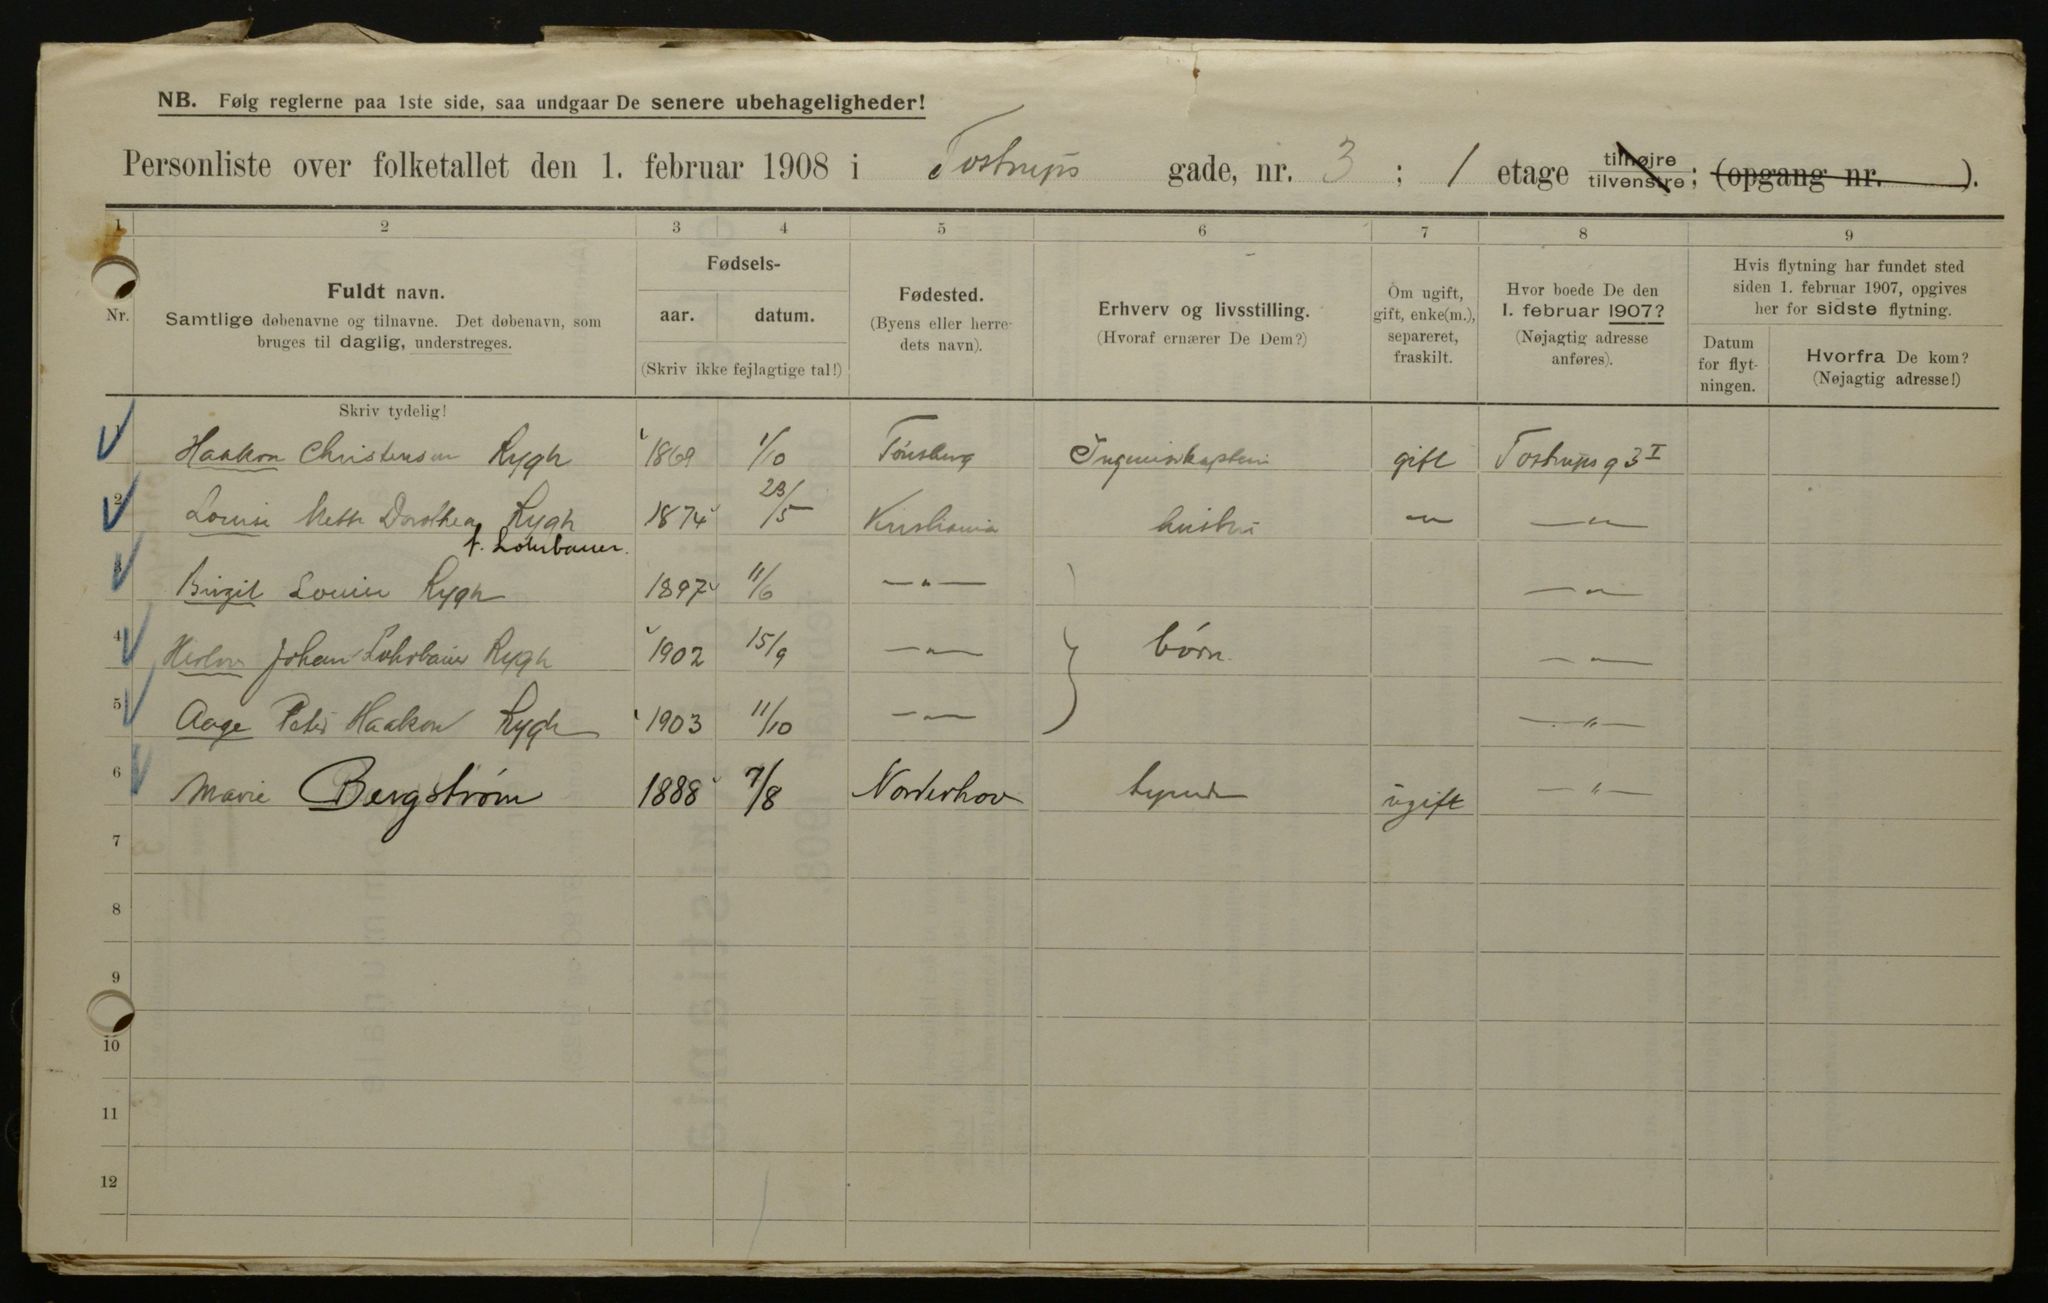 NB. Følg reglerne paa 1ste side, saa undgaar De senere ubehageligheder!
Personliste over folketallet den 1. februar 1908 i Tostrups gade, nr. 3 ; 1 etage tilhøjre tilvenstre ; (opgang nr. ).
1 2 3 4 5 6 7 8 9
Nr.
Fuldt navn.
Samtlige døbenavne og tilnavne. Det døbenavn, som
bruges til daglig, understreges.
Fødsels-
aar. datum.
(Skriv ikke fejlagtige tal!)
Fødested.
(Byens eller herre-
dets navn).
Erhverv og livsstilling.
(Hvoraf ernærer De Dem?)
Om ugift,
gift, enke(m.),
separeret,
fraskilt.
Hvor boede De den
1. februar 1907?
(Nøjagtig adresse
anføres).
Hvis flytning har fundet sted
siden 1. februar 1907, opgives
her for sidste flytning.
Datum
for flyt-
ningen.
Hvorfra De kom?
(Nøjagtig adresse!)
Skriv tydelig!
1 Haakon Christensen Rygh 1869 1/10 Tønsberg Ingeniørkaptein gift Tostrups g 3 I
2 Louise Mette Dorothea Rygh 1874 23/5 Kristiania hustru — " — — " —
f. Lohrbauer.
3 Birgit Louise Rygh 1897 11/6 — " — — " —
4 Johan Lohrbauer Rygh 1902 15/9 — " — børn — " —
5 Aage Peter Haakon Rygh 1903 11/10 — " — — " —
6 Marie Bergstrøm 1888 7/8 Norderhov ugift — " —
7
8
9
10
11
12